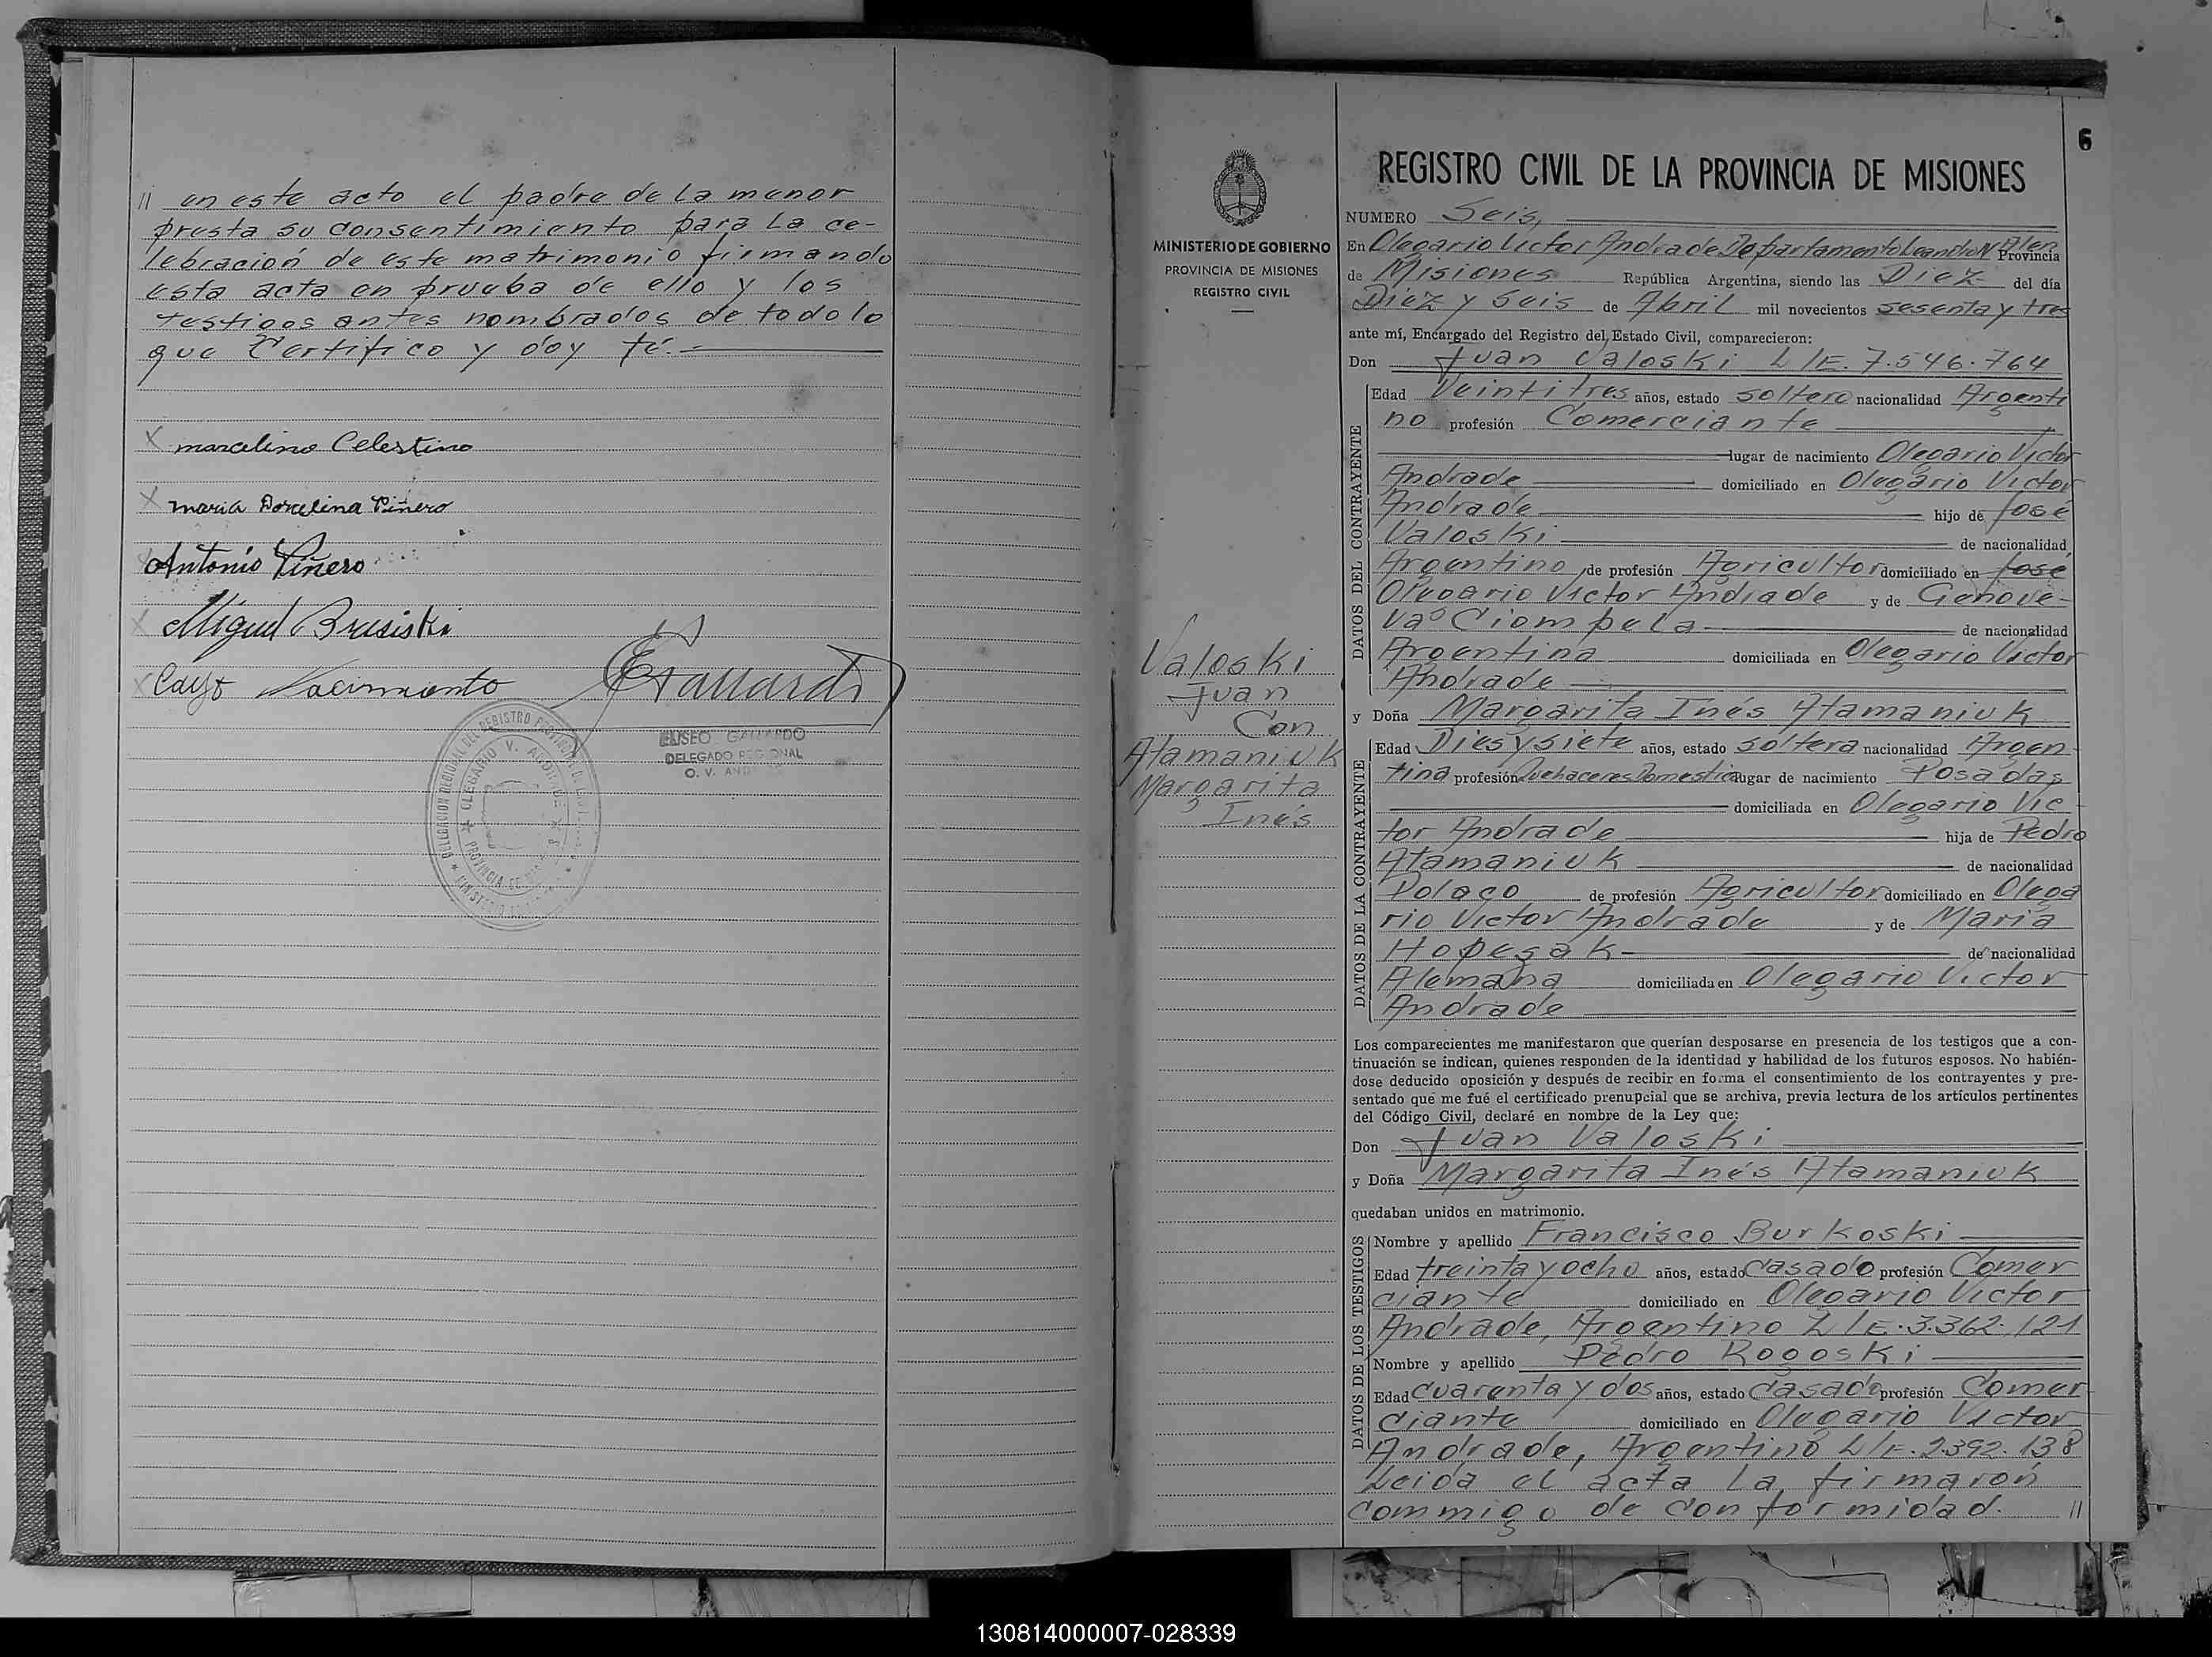 // en este acto el padre de la menor
presta su consentimiento para la ce-
lebración de este matrimonio firmando
esta acta en prueba de ello y los
testigos antes nombrados de todo lo
que Certifico y doy fé.-
X marcelino Celestino
X maria Dorcelina Piñero
Antonio Piñero
X Miguel Brusiski
X Cayo Nacimiento
ELISEO GALLARDO
DELEGADO REGIONAL
O. V. ANDRADE
6
MINISTERIO DE GOBIERNO
PROVINCIA DE MISIONES
REGISTRO CIVIL
Valoski
Juan
Con
Atamaniuk
Margarita
Inés
REGISTRO CIVIL DE LA PROVINCIA DE MISIONES
NUMERO Seis,
En Olegario Victor Andrade Departamento Leandro N Alen Provincia
de Misiones República Argentina, siendo las Diez del día
Diez y Seis de Abril mil novecientos sesenta y tres
ante mí, Encargado del Registro del Estado Civil, comparecieron:
Don Juan Valoski L/E. 7.546.764
DATOS DEL CONTRAYENTE
Edad Veintitres años, estado soltero nacionalidad Argenti
no profesión Comerciante
lugar de nacimiento Olegario Victor
Andrade domiciliado en Olegario Victor
Andrade hijo de José
Valoski de nacionalidad
Argentino de profesión Agricultor domiciliado en José
Olegario Victor Andrade y de Genove-
va Ciompela de nacionalidad
Argentina domiciliada en Olegario Victor
Andrade
y Doña Margarita Inés Atamaniuk
DATOS DE LA CONTRAYENTE
Edad Diesysiete años, estado soltera nacionalidad Argen-
tina profesión Quehaceres Domestic lugar de nacimiento Posadas
domiciliada en Olegario Vic-
tor Andrade hija de Pedro
Atamaniuk de nacionalidad
Polaco de profesión Agricultor domiciliado en Olega
rio Victor Andrade y de Maria
Hopesak de nacionalidad
Alemana domiciliada en Olegario Victor
Andrade
Los comparecientes me manifestaron que querían desposarse en presencia de los testigos que a con-
tinuación se indican, quienes responden de la identidad y habilidad de los futuros esposos. No habién-
dose deducido oposición y después de recibir en forma el consentimiento de los contrayentes y pre-
sentado que me fué el certificado prenupcial que se archiva, previa lectura de los artículos pertinentes
del Código Civil, declaré en nombre de la Ley que:
Don Juan Valoski
y Doña Margarita Inés Atamaniuk
quedaban unidos en matrimonio.
DATOS DE LOS TESTIGOS
Nombre y apellido Francisco Burkoski
Edad treinta y ocho años, estado Casado profesión Comer
ciante domiciliado en Olegario Victor
Andrade, Argentino L/E.3.362.121
Nombre y apellido Pedro Rogoski
Edad Cuarenta y dos años, estado Casado profesión Comer-
ciante domiciliado en Olegario Victor
Andrade, Argentino L/E.2.392.138
Leida el acta la firmaron
commigo de conformidad. //
130814000007-028339